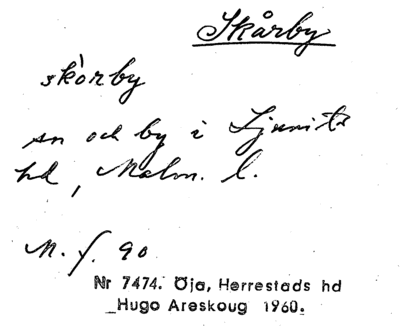 Skårby
skòrby
sn och by i Ljunits
hd, Malm. l.
M. f. 90
Nr 7474. Öja, Herrestads hd
Hugo Areskoug 1960.